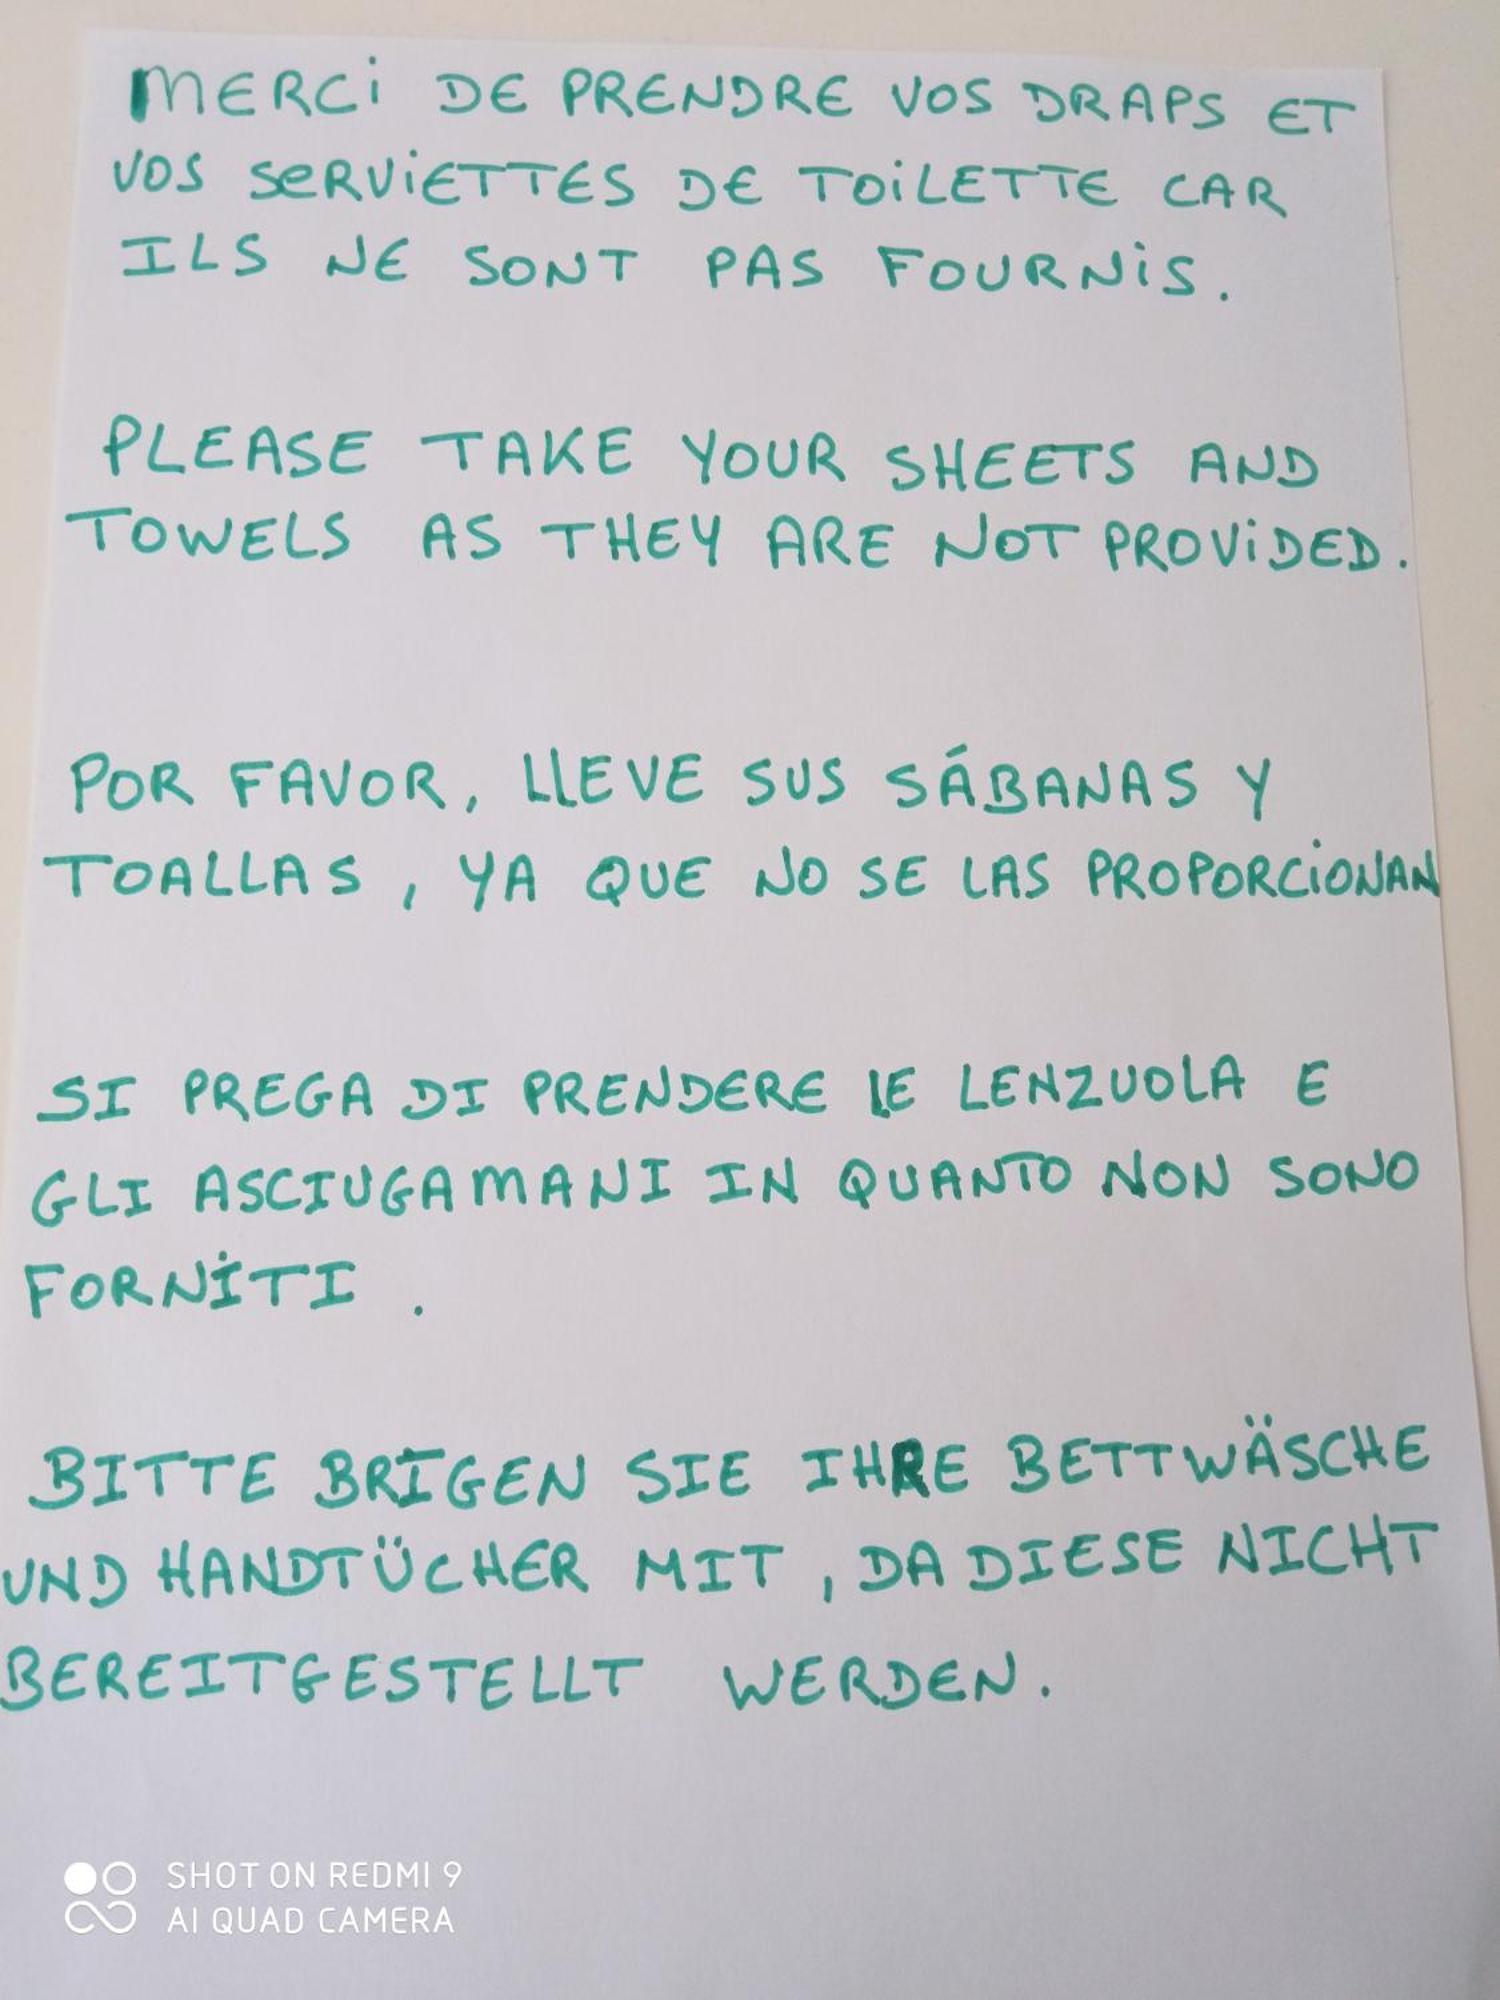 MERCI DE PRENDRE VOS DRAPS ET
VOS SERVIETTES DE TOILETTE CAR
ILS NE SONT PAS FOURNIS.
PLEASE TAKE YOUR SHEETS AND
TOWELS AS THEY ARE NOT PROVIDED.
POR FAVOR, LLEVE SUS SÁBANAS Y
TOALLAS, YA QUE NO SE LAS PROPORCIONAN
SI PREGA DI PRENDERE LE LENZUOLA E
GLI ASCIUGAMANI IN QUANTO NON SONO
FORNITI.
BITTE BRIGEN SIE IHRE BETTWÄSCHE
UND HANDTÜCHER MIT, DA DIESE NICHT
BEREITGESTELLT WERDEN.
SHOT ON REDMI 9
AI QUAD CAMERA